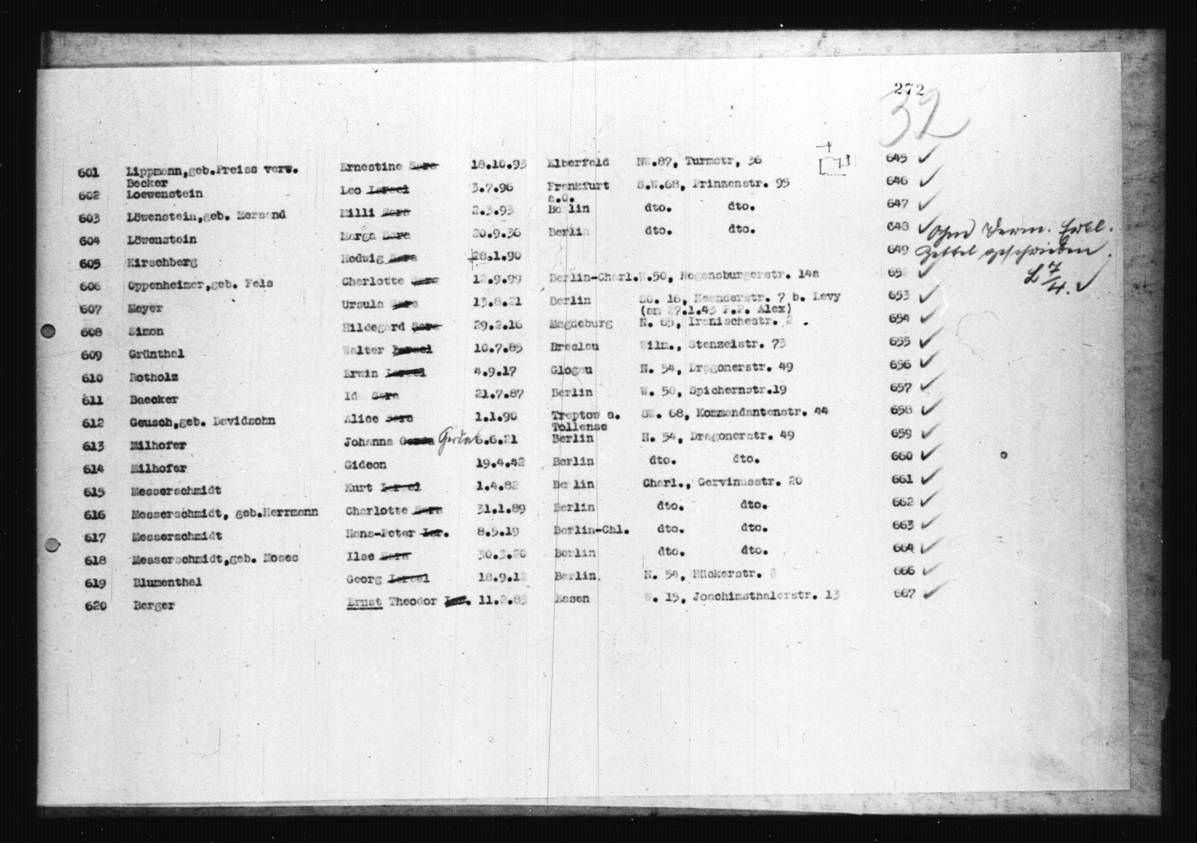 272
32
601 Lippmann,geb.Preiss verw. Ernestine Sara 18.10.93 Elberfeld NW.87, Turmstr, 36 645 ✓
Becker
602 Loewenstein Leo Israel 3.7.96 Frankfurt S.W.68, Prinzenstr. 95 646 ✓
a.O.
603 Löwenstein,geb. Mersand Milli Sara 2.3.93 Berlin dto. dto. 647 ✓
604 Löwenstein Marga Sara 20.9.36 Berlin dto. dto. 648 ✓ Ohne Verm. Erkl.
605 Kirschberg Hedwig Sara 28.1.90 649 Zettel geschrieben
606 Oppenheimer,geb. Fels Charlotte Sara 12.9.99 Berlin-Charl. W.50, Regensburgerstr. 14a ✓
607 Meyer Ursula Sara 13.8.21 Berlin SO. 16, Neanderstr. 7 b. Levy 653 ✓
(am 27.1.43 P.P. Alex)
608 Simon Hildegard Sara 29.2.16 Magdeburg N. 65, Iranischestr. 2 . 654 ✓
609 Grünthal Walter Israel 10.7.85 Breslau Wilm., Stenzelstr. 73 655 ✓
610 Rotholz Erwin Israel 4.9.17 Glogau N. 54, Dragonerstr. 49 656 ✓
611 Baecker Sara 21.7.87 Berlin W. 50, Spichernstr.19 657 ✓
612 Geusch,geb. Davidsohn Alice Sara 1.1.90 Treptow a. SW. 68, Kommandantenstr. 44 658 ✓
Tollense
613 Milhofer Johanna 6.6.21 Berlin N. 54, Dragonerstr. 49 659 ✓
614 Milhofer Gideon 19.4.42 Berlin dto. dto. 660 ✓
615 Messerschmidt Kurt Israel 1.4.82 Berlin Charl., Gervinusstr. 20 661 ✓
616 Messerschmidt, geb.Herrmann Charlotte Sara 31.1.89 Berlin dto. dto. 662 ✓
617 Messerschmidt Hans-Peter Isr. 8.5.19 Berlin-Chl. dto. dto. 663 ✓
618 Messerschmidt,geb. Moses Ilse Sara 30.3.20 Berlin dto. dto. 664 ✓
619 Blumenthal Georg Israel 18.9.12 Berlin. N. 54, Rückerstr. 2 666 ✓
620 Berger Ernst Theodor Isr. 11.2.83 Essen W. 15, Joachimsthalerstr. 13 667 ✓